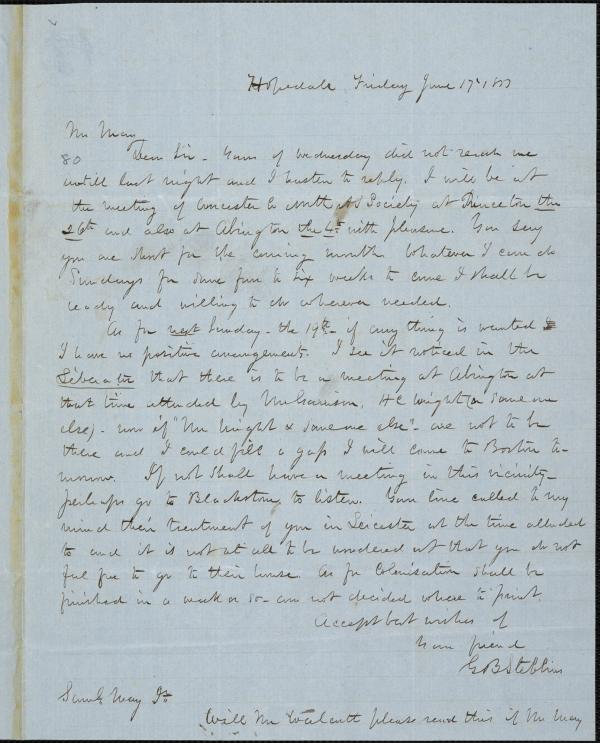 Hopedale Friday June 17th 1853
Mr May
80 Dear Sir - Yours of Wednesday did not reach me
untill last night and I hasten to reply. I will be at
the meeting of Worcester Co North A S Society at Princeton the
26th and also at Abington the 4th with pleasure. You say
you are short for the coming month. Whatever I can do
Sundays for some four to six weeks to come I shall be
ready and willing to do wherever needed.
As for next Sunday - the 19th - if any thing is wanted
I have no positive arrangement. I see it noticed in the
Liberator that there is to be a meeting at Abington at
that time attended by Mr Garrison, H C Wright (or some one
else) - now if "Mr Wright & some one else" - are not to be
there and I could fill a gap I will come to Boston to-
morrow. If not shall have a meeting in this vicinity -
perhaps go to Blackstone to listen. Your line called to my
mind their treatment of you in Leicester at the time alluded
to and it is not at all to be wondered at that you do not
feel free to go to their house. As for Colonisation shall be
finished in a week or so - am not decided where to print.
Accept best wishes of
Your friend
G B Stebbins
Saml May Jr
Will Mr Walcutt please read this if Mr May